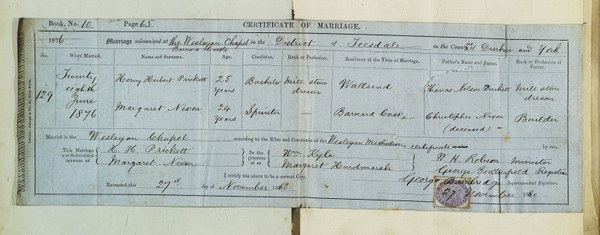 Book, No. 10 Page 65 CERTIFICATE OF MARRIAGE.
1876 Marriage solemnized at the Wesleyan Chapel Barnard Castle in the District of Teesdale in the Counties of Durham and York
No. When Married. Name and Surname. Age. Condition. Rank or Profession. Residence at the Time of Marriage. Father's Name and Surname. Rank or Profession of Father.
129 Twenty eighth June 1876
Henry Herbert Prickett 25 years Bachelor Mill stone dresser Wallsend Thomas Nelson Prickett Mill stone dresser
Margaret Nixon 24 years Spinster — Barnard Castle Christopher Nixon (deceased) Builder
Married in the Wesleyan Chapel according to the Rites and Ceremonies of the Wesleyan Methodists certificate by me,
This Marriage was Solemnized between us
H. H. Prickett
Margaret Nixon
In the presence of us
Wm Kyle
Margaret Hindmarsh
W. H. Robson Minister
George Registrar
I certify the above to be a correct Copy.
George Superintendent Registrar.
Extracted this 27th day of November
27 November